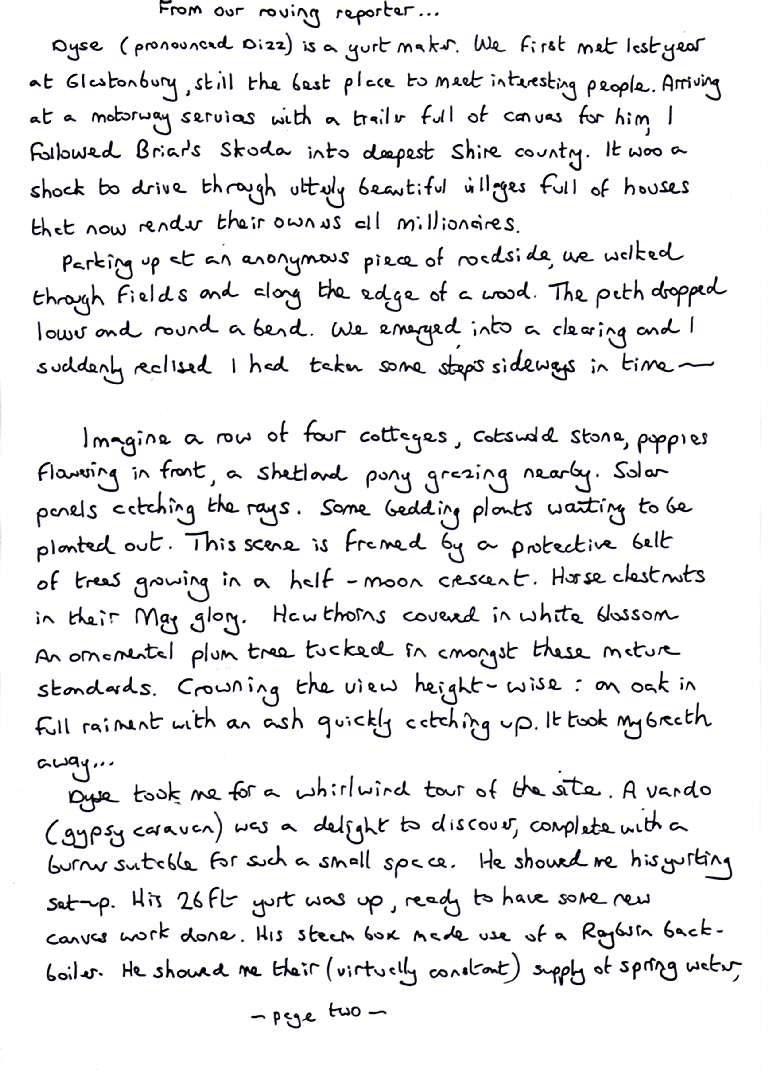 From our roving reporter...
Dyse (pronounced Dizz) is a yurt maker. We first met last year
at Glastonbury, still the best place to meet interesting people. Arriving
at a motorway services with a trailer full of canvas for him, I
followed Brian's Skoda into deepest Shire country. It was a
shock to drive through utterly beautiful villages full of houses
that now render their owners all millionaires.
Parking up at an anonymous piece of roadside, we walked
through fields and along the edge of a wood. The path dropped
lower and round a bend. We emerged into a clearing and I
suddenly realised I had taken some steps sideways in time ~
Imagine a row of four cottages, cotswold stone, poppies
flowering in front, a shetland pony grazing nearby. Solar
panels catching the rays. Some bedding plants waiting to be
planted out. This scene is framed by a protective belt
of trees growing in a half-moon crescent. Horse chestnuts
in their May glory. Hawthorns covered in white blossom
An ornamental plum tree tucked in amongst these mature
standards. Crowning the view height-wise: an oak in
full raiment with an ash quickly catching up. It took my breath
away...
Dyse took me for a whirlwind tour of the site. A vardo
(gypsy caravan) was a delight to discover, complete with a
burner suitable for such a small space. He showed me his yurting
set-up. His 26ft yurt was up, ready to have some new
canvas work done. His steam box made use of a Rayburn back-
boiler. He showed me their (virtually constant) supply of spring water,
~ page two ~